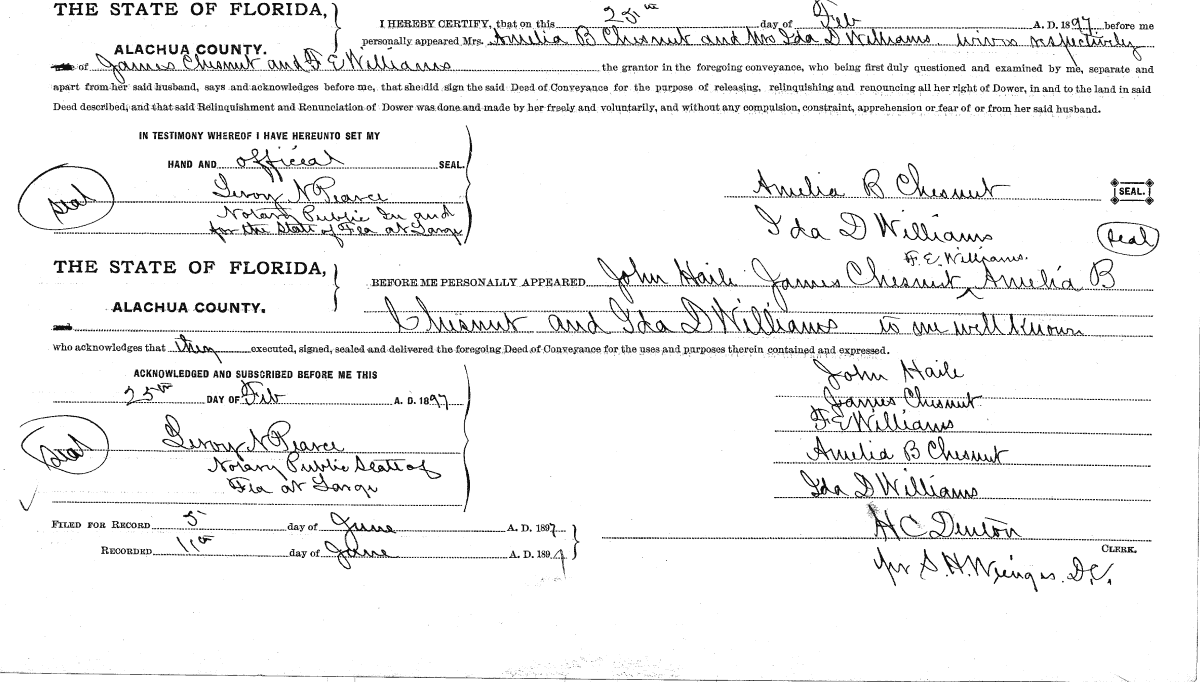 THE STATE OF FLORIDA,
ALACHUA COUNTY.
I HEREBY CERTIFY, that on this 25th day of Feb A. D. 1897 before me
personally appeared Mrs. Amelia B Chesnut and Mrs Ida D Williams wives respectively
of James Chesnut and F E Williams the grantor in the foregoing conveyance, who being first duly questioned and examined by me, separate and
apart from her said husband, says and acknowledges before me, that she did sign the said Deed of Conveyance for the purpose of releasing, relinquishing and renouncing all her right of Dower, in and to the land in said
Deed described, and that said Relinquishment and Renunciation of Dower was done and made by her freely and voluntarily, and without any compulsion, constraint, apprehension or fear of or from her said husband.
IN TESTIMONY WHEREOF I HAVE HEREUNTO SET MY
HAND AND official SEAL.
seal
Leroy N Pearce
Notary Public In and
for the State of Fla at Large
Amelia B Chesnut SEAL.
Ida D Williams seal
THE STATE OF FLORIDA,
ALACHUA COUNTY.
F. E. Williams.
BEFORE ME PERSONALLY APPEARED John Haile James Chesnut ^ Amelia B
Chesnut and Ida D Williams to me well known
who acknowledges that they executed, signed, sealed and delivered the foregoing Deed of Conveyance for the uses and purposes therein contained and expressed.
ACKNOWLEDGED AND SUBSCRIBED BEFORE ME THIS
25th DAY OF Feb A. D. 1897
seal
Leroy N Pearce
Notary Public State of
Fla at Large
John Haile
James Chesnut
F E Williams
Amelia B Chesnut
Ida D Williams
FILED FOR RECORD 5 day of June A. D. 1897
RECORDED 11th day of June A. D. 1897
H C Denton
CLERK.
per S. H. Wienges. D.C.